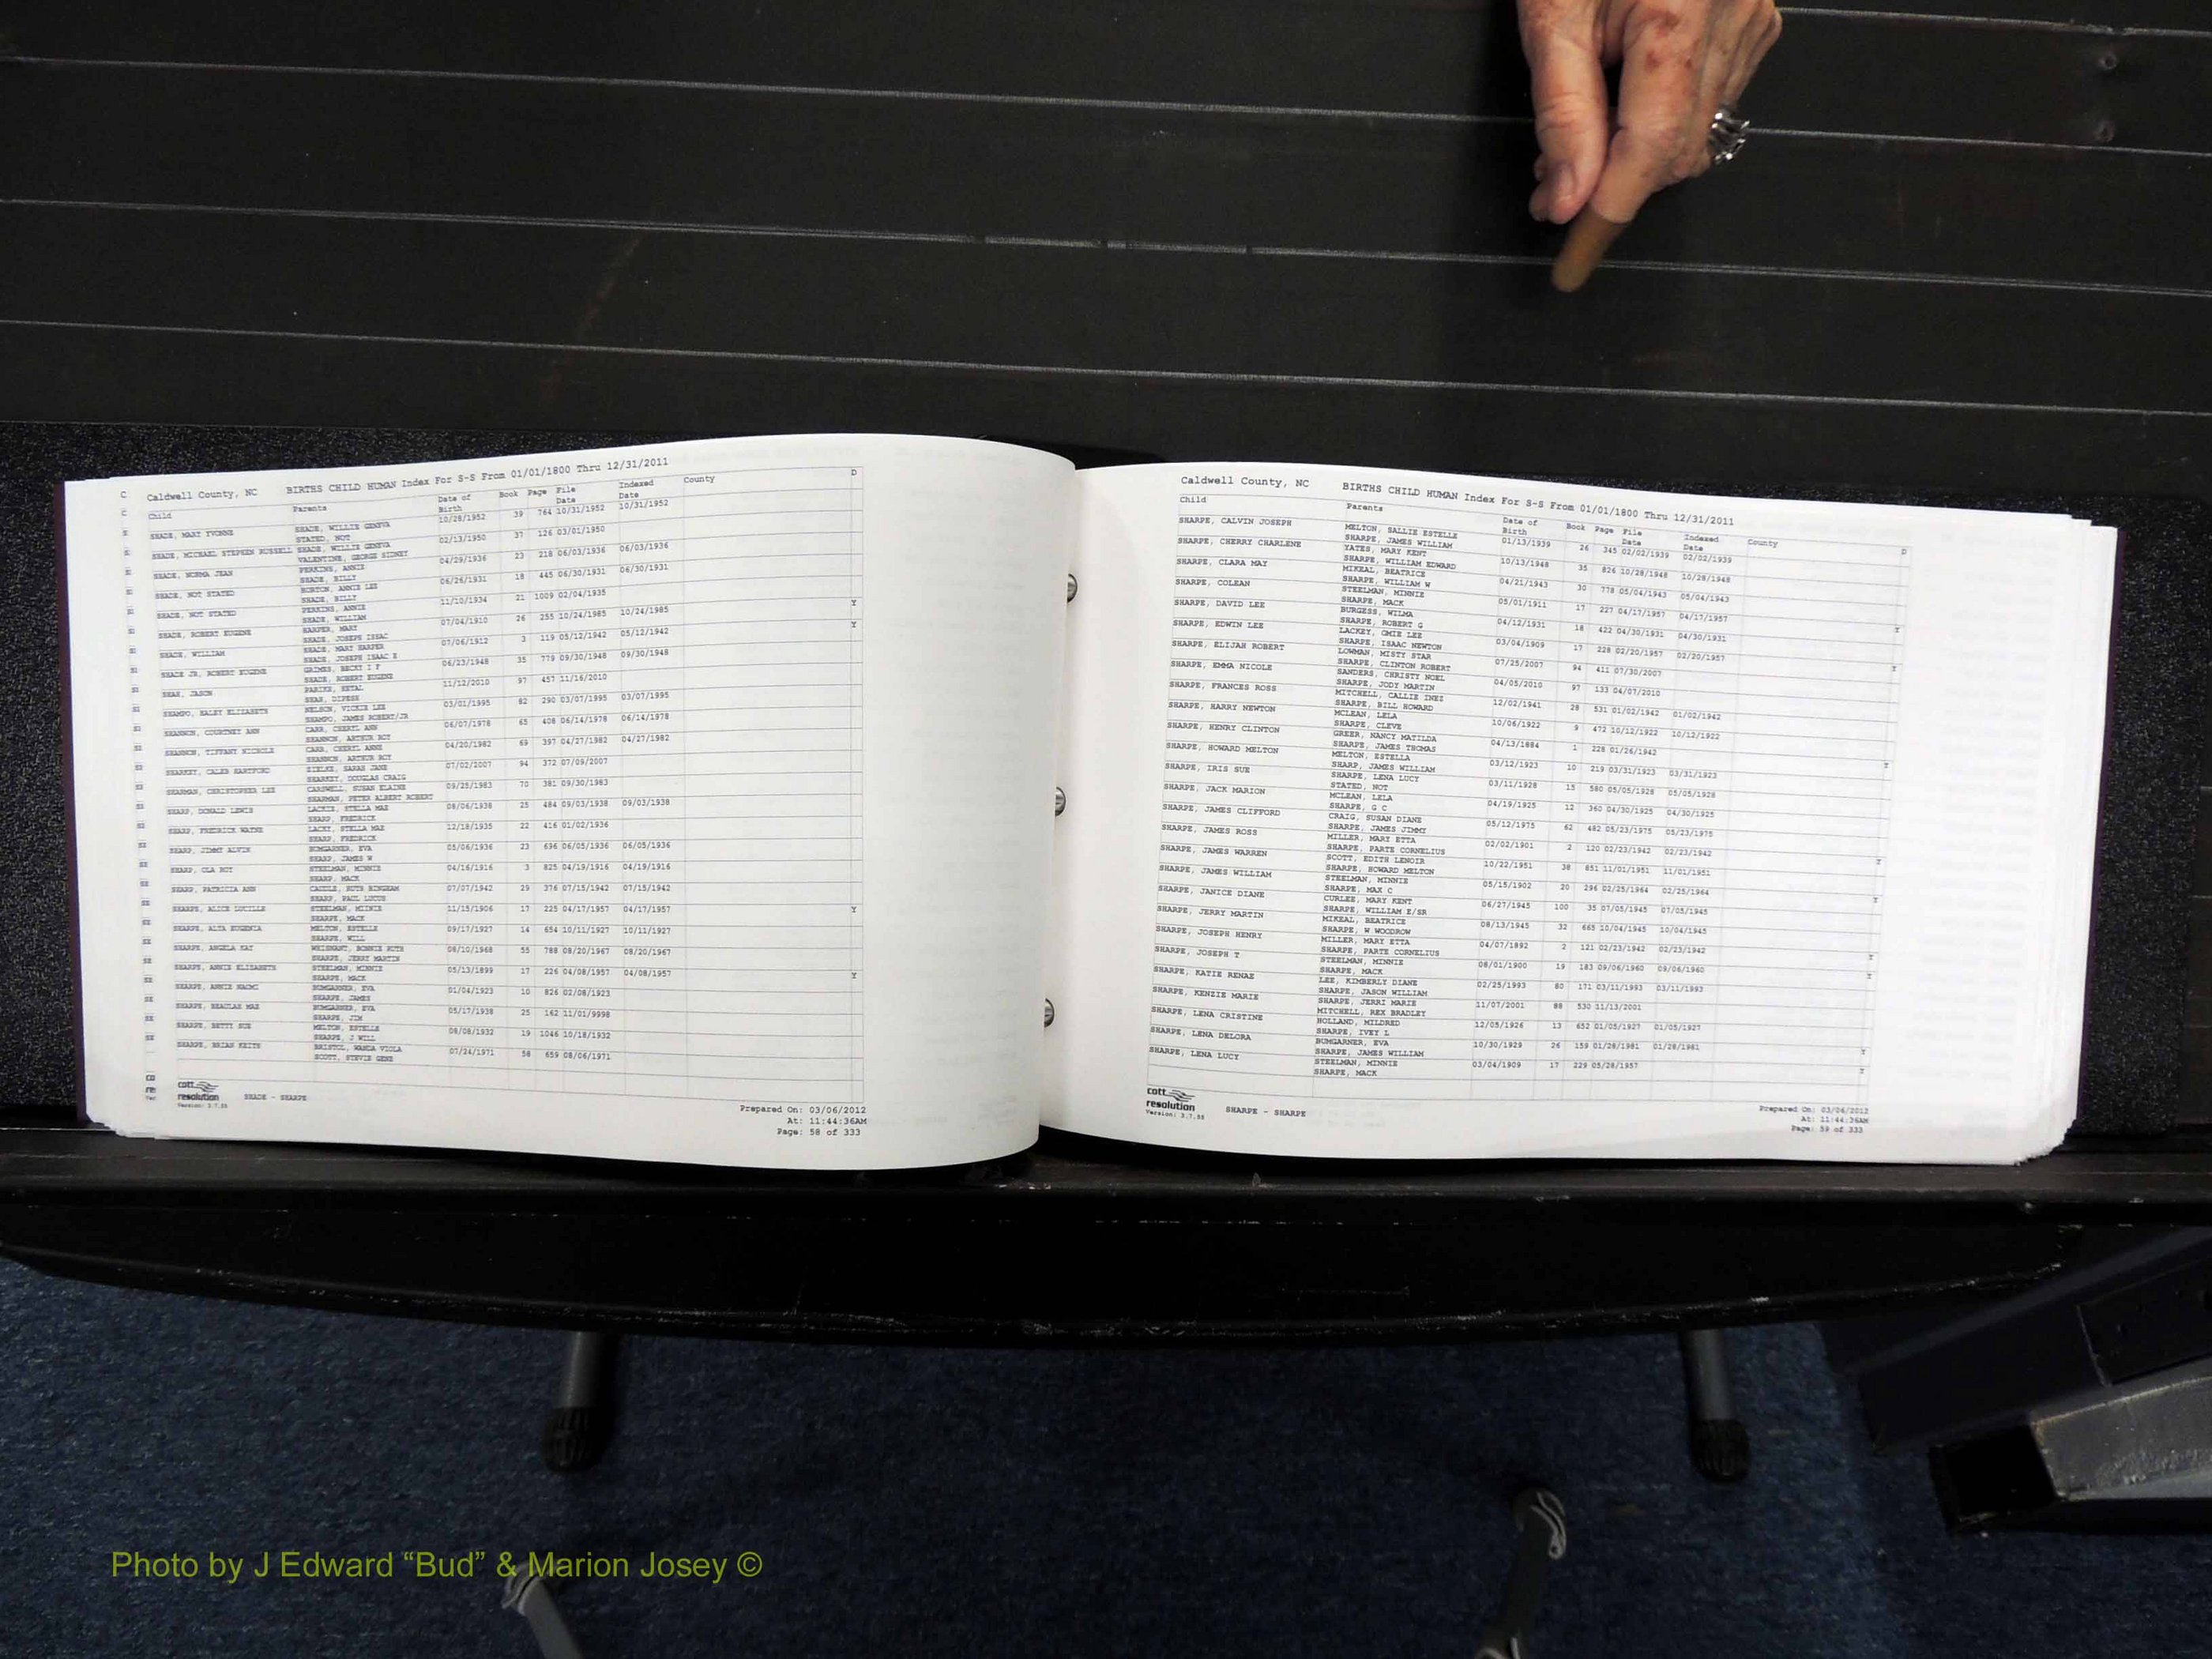 Caldwell County, NC BIRTHS CHILD HUMAN Index For S-S From 01/01/1800 Thru 12/31/2011
Child Parents Date of Birth Book Page File Date Indexed Date County D
SHADE, MARY YVONNE SHADE, WILLIE GENEVA 10/28/1952 39 764 10/31/1952 10/31/1952
STATED, NOT
SHADE, MICHAEL STEPHEN RUSSELL SHADE, WILLIE GENEVA 02/13/1950 37 126 03/01/1950
VALENTINE, GEORGE SIDNEY
SHADE, NORMA JEAN PERKINS, ANNIE 04/29/1936 23 218 06/03/1936 06/03/1936
SHADE, BILLY
SHADE, NOT STATED BORTON, ANNIE LEE 06/26/1931 18 445 06/30/1931 06/30/1931
SHADE, BILLY
SHADE, NOT STATED PERKINS, ANNIE 11/10/1934 21 1009 02/04/1935
SHADE, WILLIAM
SHADE, ROBERT EUGENE HARPER, MARY 07/04/1910 26 255 10/24/1985 10/24/1985 Y
SHADE, JOSEPH ISAAC
SHADE, WILLIAM SHADE, MARY HARPER 07/06/1912 3 119 05/12/1942 05/12/1942 Y
SHADE, JOSEPH ISAAC E
SHADE JR, ROBERT EUGENE GRIMES, BECKY I F 06/23/1948 35 779 09/30/1948 09/30/1948
SHADE, ROBERT EUGENE
SHAH, JASON PARIKH, HETAL 11/12/2010 97 457 11/16/2010
SHAH, DIPESH
SHAMPO, HALEY ELIZABETH NELSON, VICKIE LEE 03/01/1995 82 290 03/07/1995 03/07/1995
SHAMPO, JAMES ROBERT/JR
SHANNON, COURTNEY ANN CARR, CHERYL ANN 06/07/1978 65 408 06/14/1978 06/14/1978
SHANNON, ARTHUR ROY
SHANNON, TIFFANY NICHOLE CARR, CHERYL ANNE 04/20/1982 69 397 04/27/1982 04/27/1982
SHANNON, ARTHUR ROY
SHARKEY, CALEB HARTFORD ZIELKE, SARAH JANE 07/02/2007 94 372 07/09/2007
SHARKEY, DOUGLAS CRAIG
SHARMAN, CHRISTOPHER LEE CARSWELL, SUSAN ELAINE 09/25/1983 70 381 09/30/1983
SHARMAN, PETER ALBERT ROBERT
SHARP, DONALD LEWIS LACKEY, STELLA MAE 08/06/1938 25 484 09/03/1938 09/03/1938
SHARP, FREDRICK
SHARP, FREDRICK WAYNE LACKY, STELLA MAE 12/18/1935 22 416 01/02/1936
SHARP, FREDRICK
SHARP, JIMMY ALVIN BUMGARNER, EVA 05/06/1936 23 696 06/05/1936 06/05/1936
SHARP, JAMES W
SHARP, OLA ROY STEELMAN, MINNIE 04/16/1916 3 825 04/19/1916 04/19/1916
SHARP, MACK
SHARP, PATRICIA ANN CAUDLE, RUTH BINGHAM 07/07/1942 29 376 07/15/1942 07/15/1942
SHARP, PAUL LUCUS
SHARPE, ALICE LUCILLE STEELMAN, MINNIE 11/15/1906 17 225 04/17/1957 04/17/1957 Y
SHARPE, MACK
SHARPE, ALTA EUGENIA MELTON, ESTELLE 09/17/1927 14 654 10/11/1927 10/11/1927
SHARPE, WILL
SHARPE, ANGELA KAY WHISNANT, BONNIE RUTH 08/10/1968 55 788 08/20/1967 08/20/1967
SHARPE, JERRY MARTIN
SHARPE, ANNIE ELIZABETH STEELMAN, MINNIE 05/13/1899 17 226 04/08/1957 04/08/1957 Y
SHARPE, MACK
SHARPE, ANNIE NAOMI BUMGARNER, EVA 01/04/1923 10 826 02/08/1923
SHARPE, JAMES
SHARPE, BEAULAH MAE BUMGARNER, EVA 05/17/1938 25 162 11/01/9998
SHARPE, JIM
SHARPE, BETTY SUE MELTON, ESTELLE 08/08/1932 19 1046 10/18/1932
SHARPE, J WILL
SHARPE, BRIAN KEITH BRISTOL, WANDA VIOLA 07/24/1971 58 659 08/06/1971
SCOTT, STEVIE GENE
cott
resolution SHADE - SHARPE
Version: 3.7.55
Prepared On: 03/06/2012
At: 11:44:36AM
Page: 58 of 333
Caldwell County, NC BIRTHS CHILD HUMAN Index For S-S From 01/01/1800 Thru 12/31/2011
Child Parents Date of Birth Book Page File Date Indexed Date County D
SHARPE, CALVIN JOSEPH MELTON, SALLIE ESTELLE 01/13/1939 26 345 02/02/1939 02/02/1939
SHARPE, JAMES WILLIAM
SHARPE, CHERRY CHARLENE YATES, MARY KENT 10/13/1948 35 826 10/28/1948 10/28/1948
SHARPE, WILLIAM EDWARD
SHARPE, CLARA MAY MIKEAL, BEATRICE 04/21/1943 30 778 05/04/1943 05/04/1943
SHARPE, WILLIAM W
SHARPE, COLEAN STEELMAN, MINNIE 05/01/1911 17 227 04/17/1957 04/17/1957 Y
SHARPE, MACK
SHARPE, DAVID LEE BURGESS, WILMA 04/12/1931 18 422 04/30/1931 04/30/1931
SHARPE, ROBERT G
SHARPE, EDWIN LEE LACKEY, OMIE LEE 03/04/1909 17 228 02/20/1957 02/20/1957 Y
SHARPE, ISAAC NEWTON
SHARPE, ELIJAH ROBERT LOWMAN, MISTY STAR 07/25/2007 94 411 07/30/2007
SHARPE, CLINTON ROBERT
SHARPE, EMMA NICOLE SANDERS, CHRISTY NOEL 04/05/2010 97 133 04/07/2010
SHARPE, JODY MARTIN
SHARPE, FRANCES ROSS MITCHELL, CALLIE INEZ 12/02/1941 28 531 01/02/1942 01/02/1942
SHARPE, BILL HOWARD
SHARPE, HARRY NEWTON MCLEAN, LELA 10/06/1922 9 472 10/12/1922 10/12/1922
SHARPE, CLEVE
SHARPE, HENRY CLINTON GREER, NANCY MATILDA 04/13/1884 1 228 01/26/1942 Y
SHARPE, JAMES THOMAS
SHARPE, HOWARD MELTON MELTON, ESTELLA 03/12/1923 10 219 03/31/1923 03/31/1923
SHARP, JAMES WILLIAM
SHARPE, IRIS SUE SHARPE, LENA LUCY 03/11/1928 15 580 05/05/1928 05/05/1928
STATED, NOT
SHARPE, JACK MARION MCLEAN, LELA 04/19/1925 12 360 04/30/1925 04/30/1925
SHARPE, G C
SHARPE, JAMES CLIFFORD CRAIG, SUSAN DIANE 05/12/1975 62 482 05/23/1975 05/23/1975
SHARPE, JAMES JIMMY
SHARPE, JAMES ROSS MILLER, MARY ETTA 02/02/1901 2 120 02/23/1942 02/23/1942 Y
SHARPE, PARTE CORNELIUS
SHARPE, JAMES WARREN SCOTT, EDITH LENOIR 10/22/1951 38 851 11/01/1951 11/01/1951
SHARPE, HOWARD MELTON
SHARPE, JAMES WILLIAM STEELMAN, MINNIE 05/15/1902 20 296 02/25/1964 02/25/1964 Y
SHARPE, MAX C
SHARPE, JANICE DIANE CURLEE, MARY KENT 06/27/1945 100 35 07/05/1945 07/05/1945
SHARPE, WILLIAM E/SR
SHARPE, JERRY MARTIN MIKEAL, BEATRICE 08/13/1945 32 665 10/04/1945 10/04/1945
SHARPE, W WOODROW
SHARPE, JOSEPH HENRY MILLER, MARY ETTA 04/07/1892 2 121 02/23/1942 02/23/1942 Y
SHARPE, PARTE CORNELIUS
SHARPE, JOSEPH T STEELMAN, MINNIE 08/01/1900 19 183 09/06/1960 09/06/1960 Y
SHARPE, MACK
SHARPE, KATIE RENAE LEE, KIMBERLY DIANE 02/25/1993 80 171 03/11/1993 03/11/1993
SHARPE, JASON WILLIAM
SHARPE, KENZIE MARIE SHARPE, JERRI MARIE 11/07/2001 88 530 11/13/2001
MITCHELL, REX BRADLEY
SHARPE, LENA CRISTINE HOLLAND, MILDRED 12/05/1926 13 652 01/05/1927 01/05/1927
SHARPE, IVEY L
SHARPE, LENA DELORA BUMGARNER, EVA 10/30/1929 26 159 01/28/1981 01/28/1981 Y
SHARPE, JAMES WILLIAM
SHARPE, LENA LUCY STEELMAN, MINNIE 03/04/1909 17 229 05/28/1957 Y
SHARPE, MACK
cott
resolution SHARPE - SHARPE
Version: 3.7.55
Prepared On: 03/06/2012
At: 11:44:36AM
Page: 59 of 333
Photo by J Edward “Bud” & Marion Josey ©